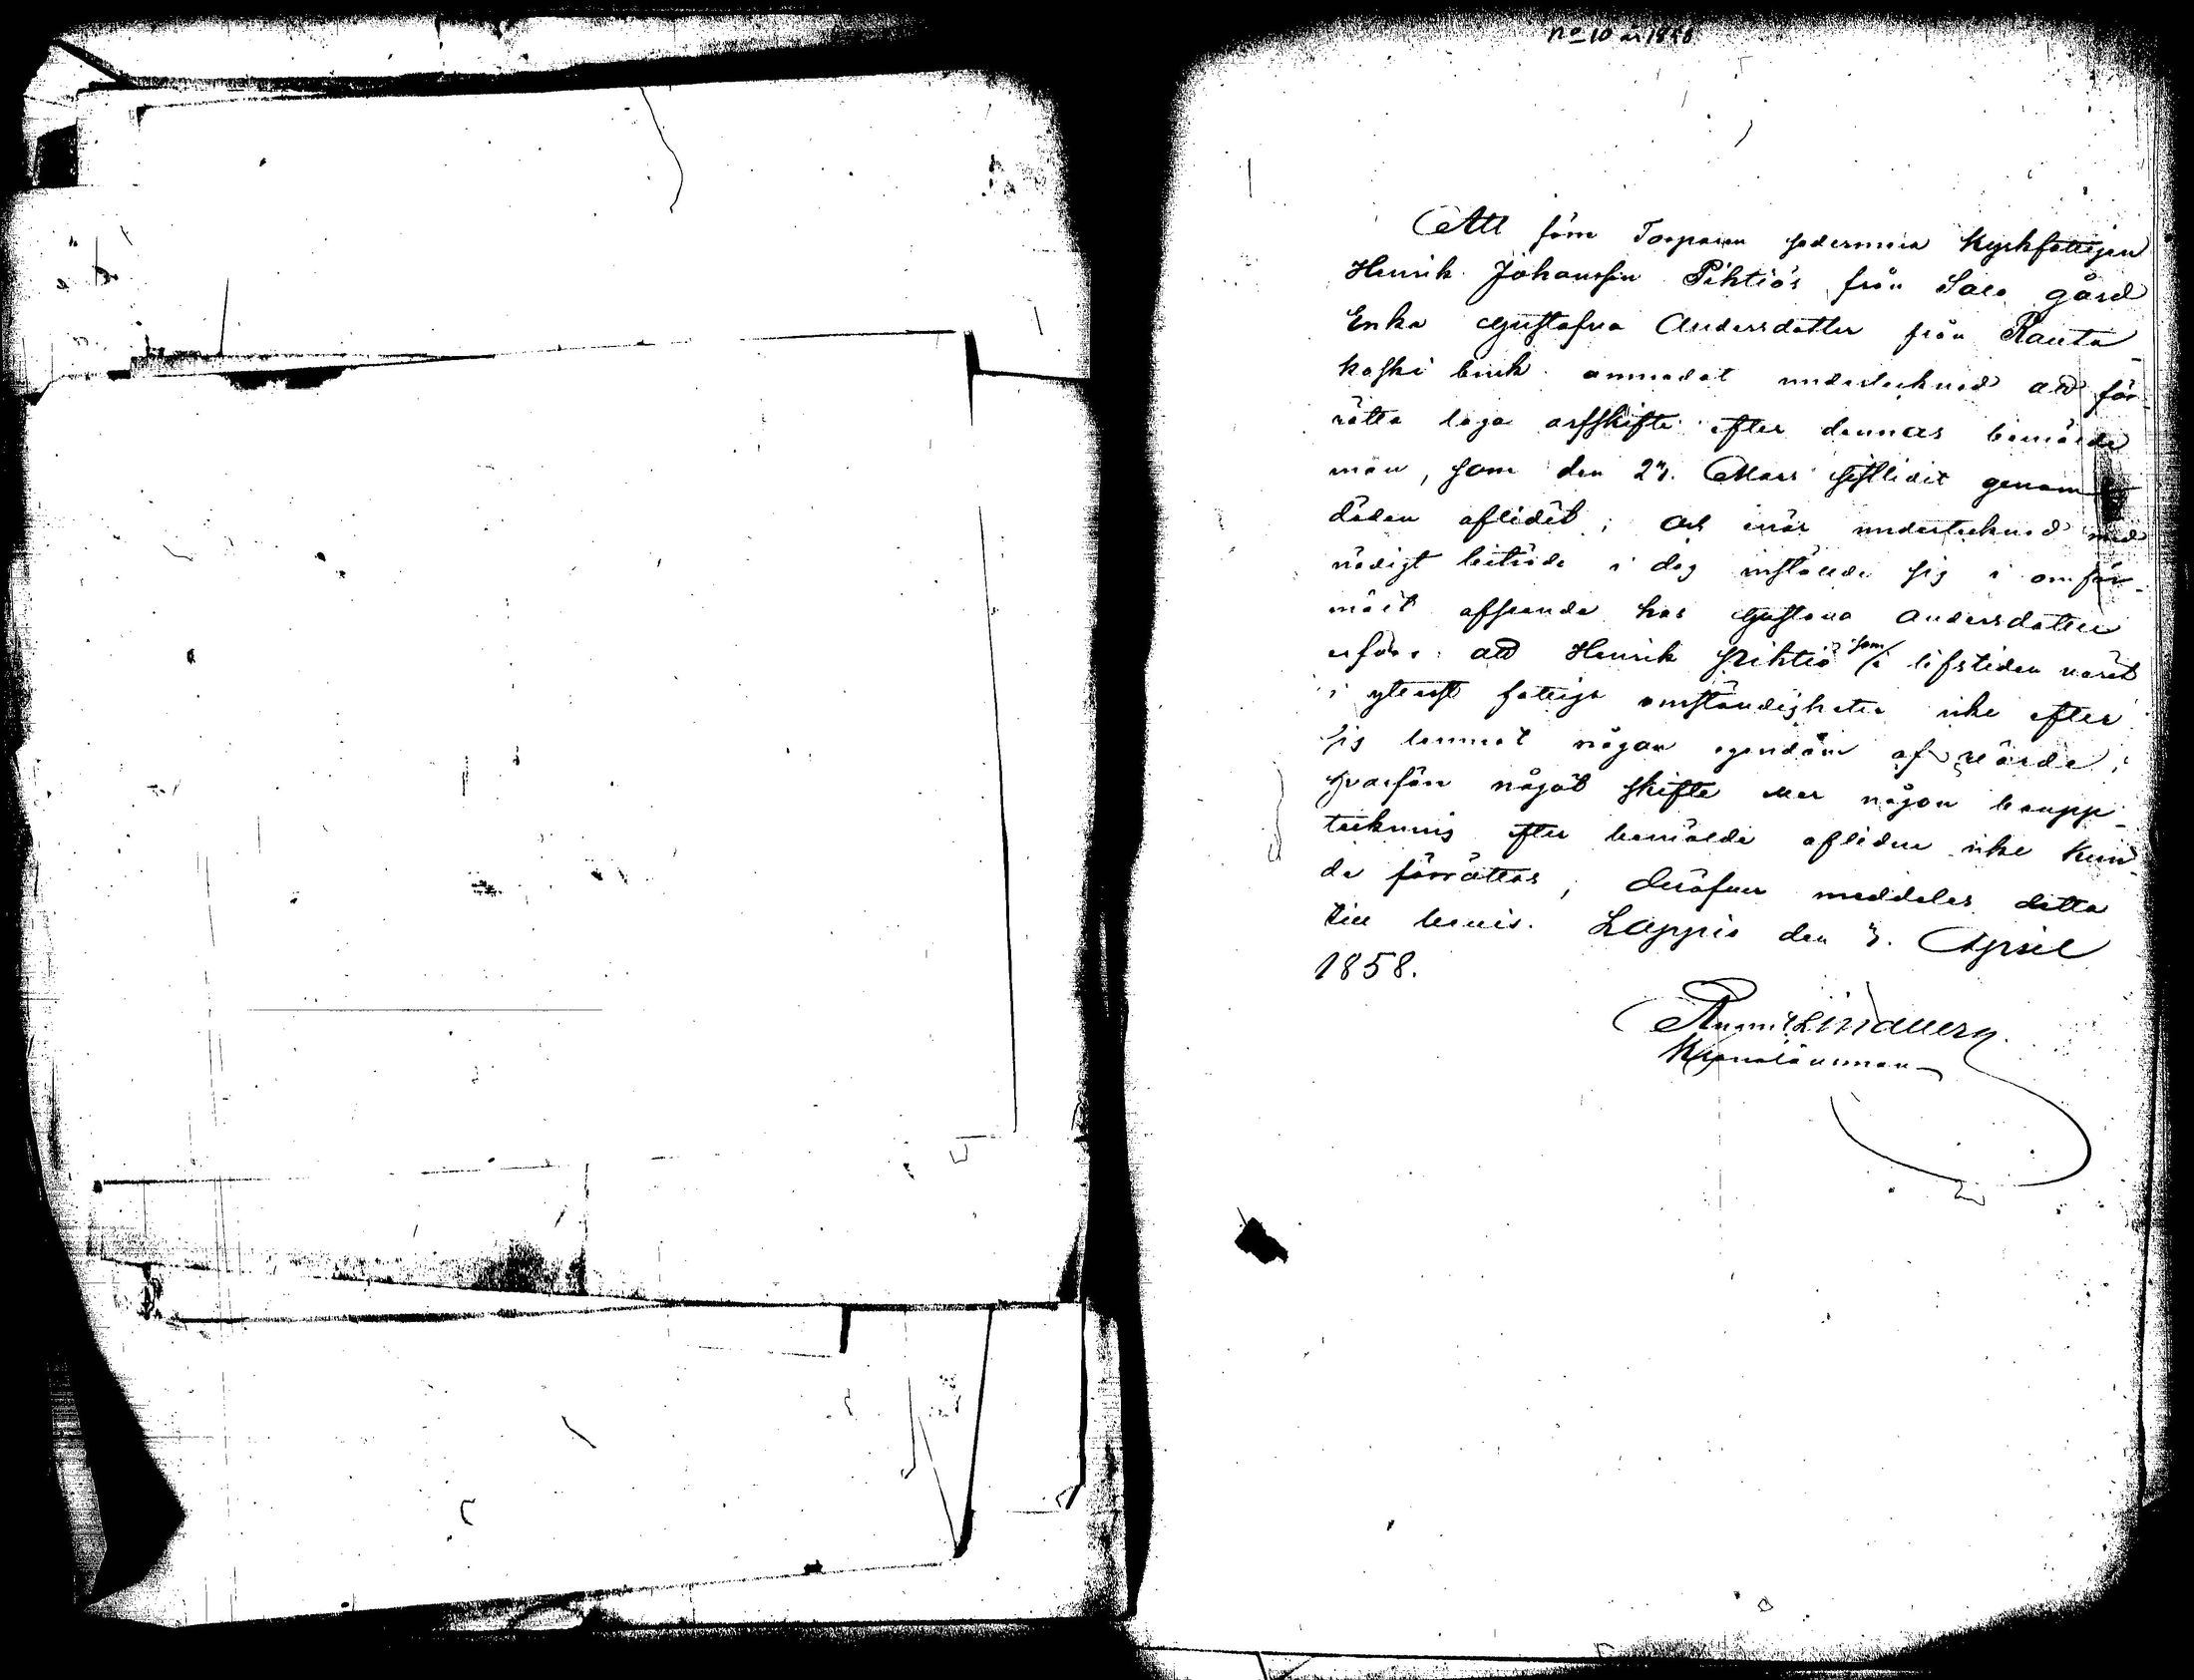 No 10 år 1858
Att förre Torparen sedermera Kyrkfattigen
Henrik Johansson Pihtiö's från Salo gård
Enka Gustafva Andersdotter från Rauta-
koski bruk anmodat undertecknad att för-
rätta laga arfskifte efter dennas bemälde
man, som den 27. Mars sistlidit genom
döden aflidit; och när undertecknad med
nödigt biträde i dag inställde sig i omför-
mält afseende hos Gustava Andersdotter
erfors att Henrik Pihtiö som i lifstiden varit
i yterst fattiga omständigheter icke efter
sig lemnat någon egendom af värde,
hvarföre något skifte eller någon boupp-
teckning efter bemälde aflidne icke kun-
de förrättas; deröfver meddelas detta
till bevis. Lappis den 7. April
1858.
August Lindberg
Kronolänsman